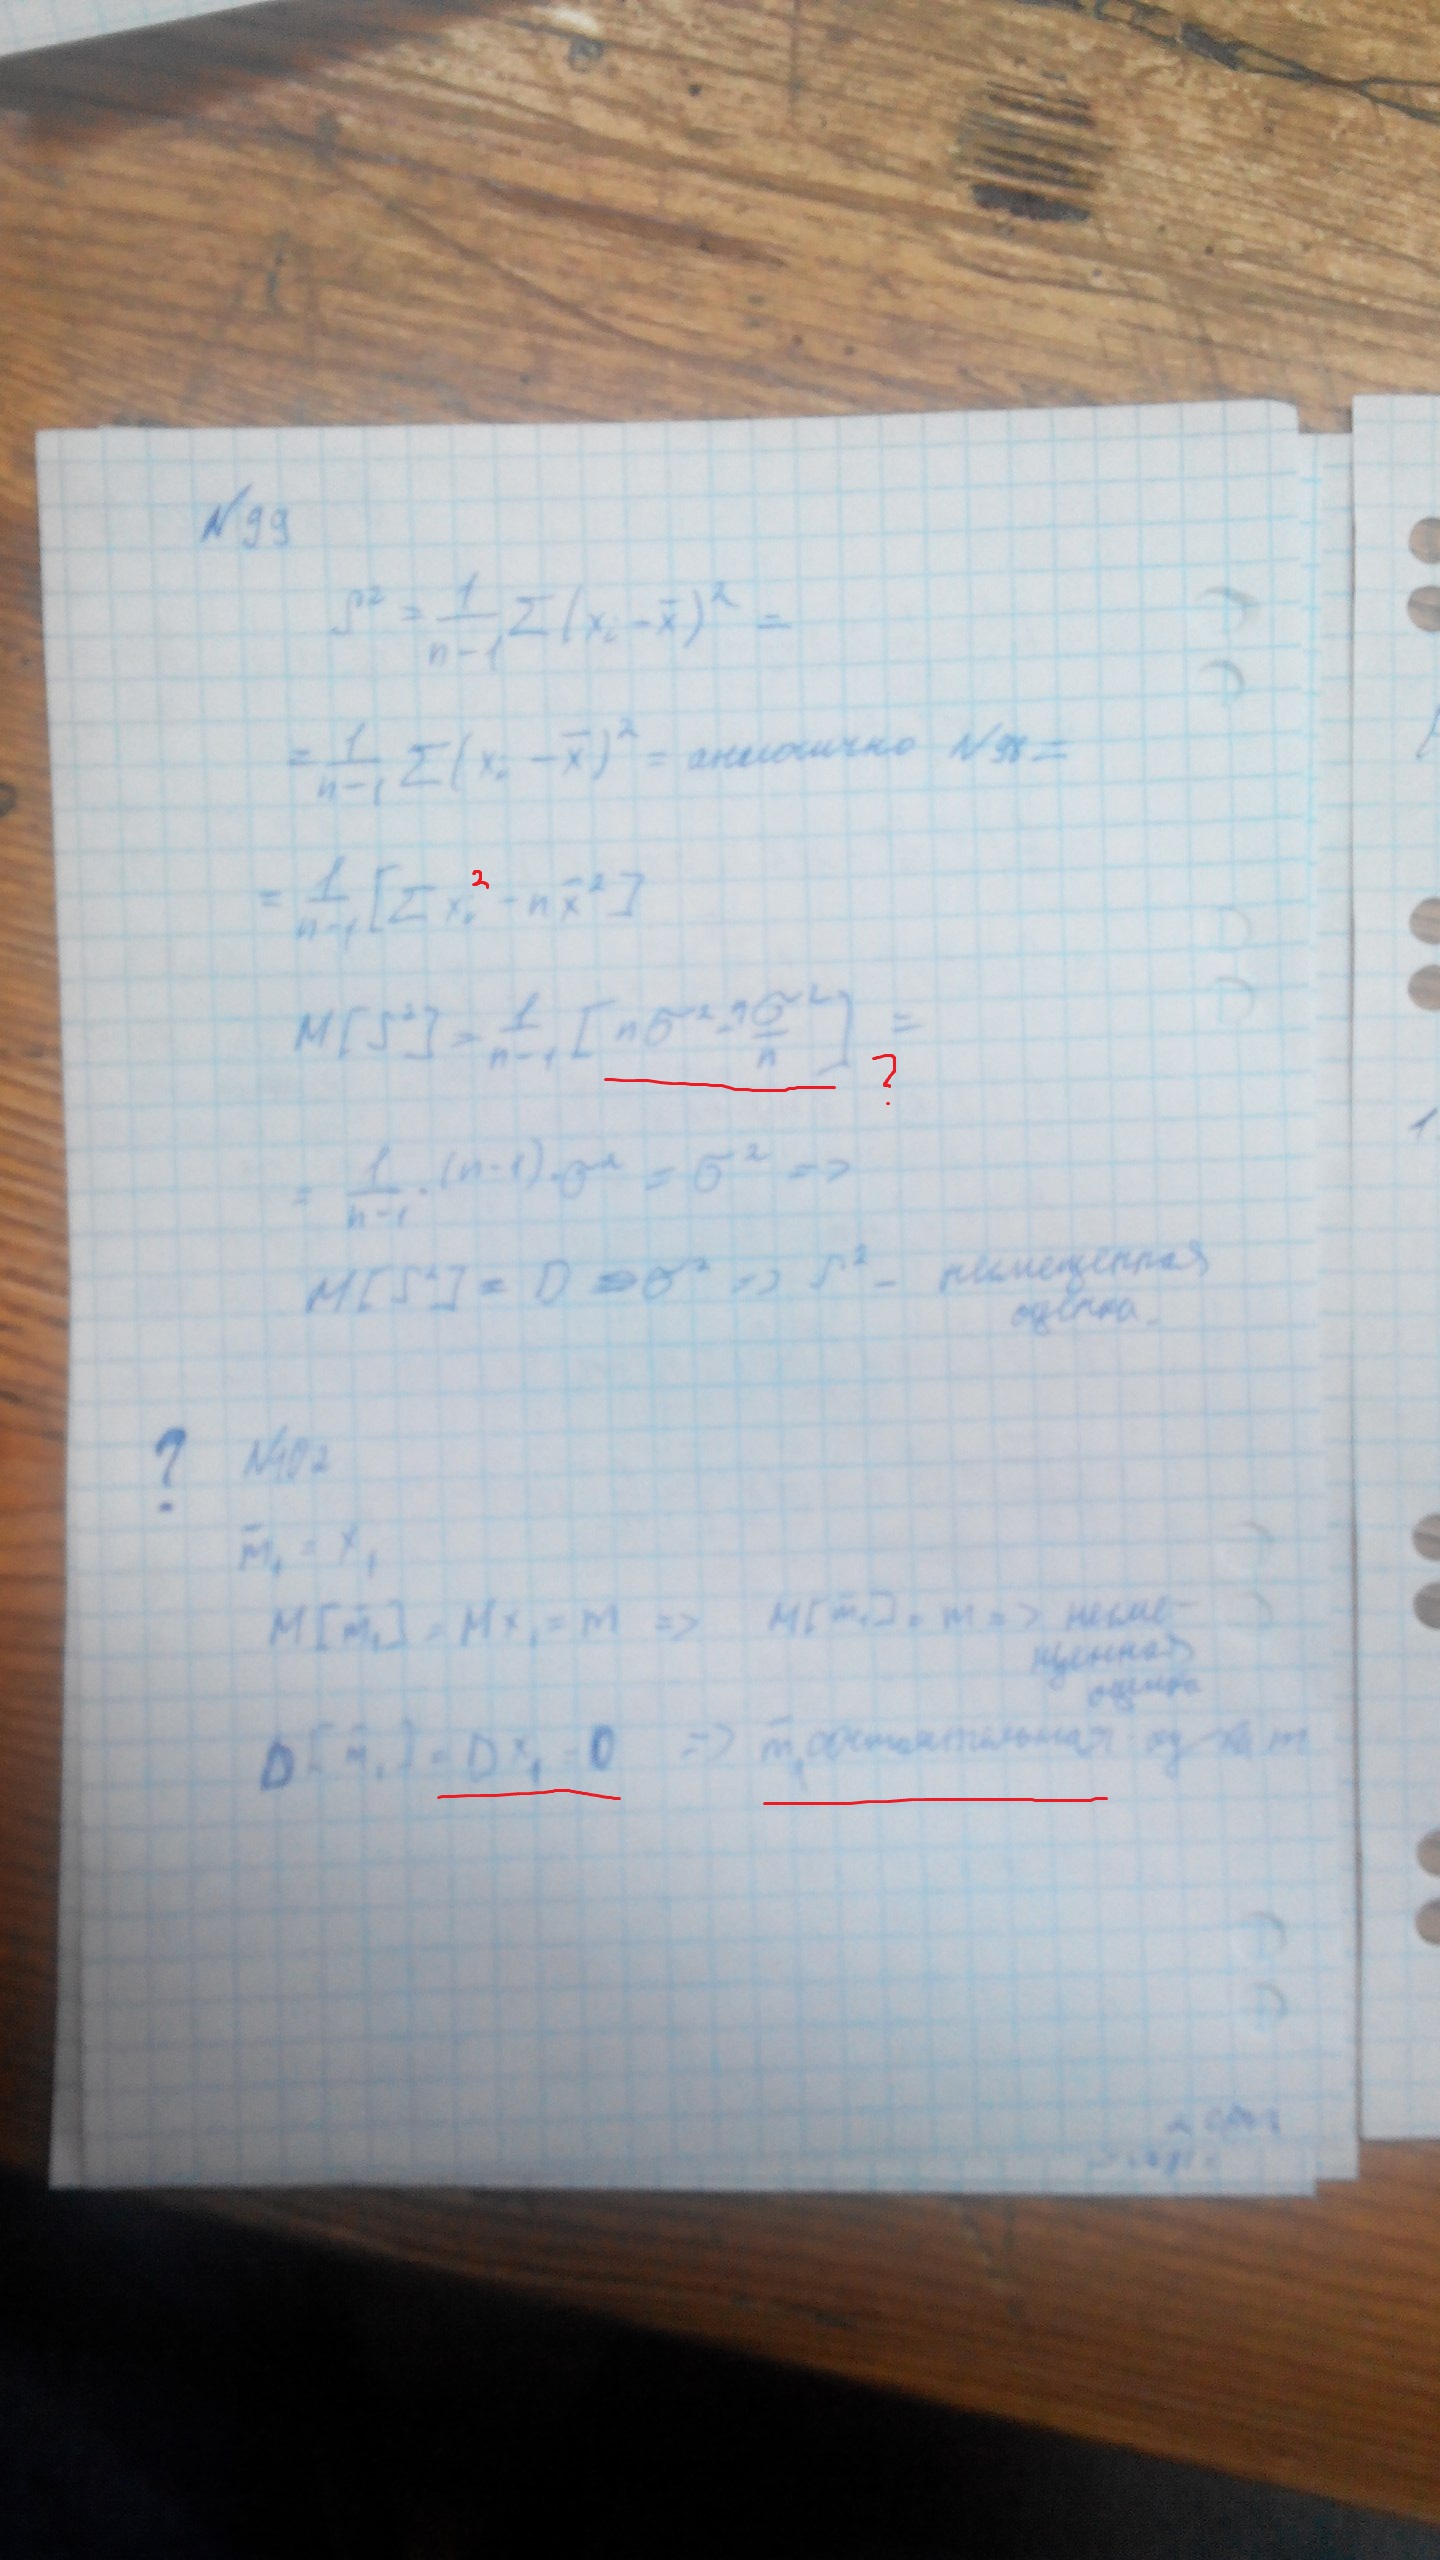 N99
S² = 1/(n-1) Σ(xᵢ - x̄)² =
= 1/(n-1) Σ(xᵢ - x̄)² = аналогично N98 =
= 1/(n-1) [Σxᵢ² - nx̄²]
M[S²] = 1/(n-1) [nσ² - nσ²/n] =
?
= 1/(n-1) · (n-1) · σ² = σ² =>
M[S²] = D = σ² => S² - несмещенная
оценка.
? N102
m̄₁ = x₁
M[m̄₁] = Mx₁ = m => M[m̄₁] = m => несме-
щенная
оценка
D[m̄₁] = Dx₁ = 0 => m̄₁ состоятельная m